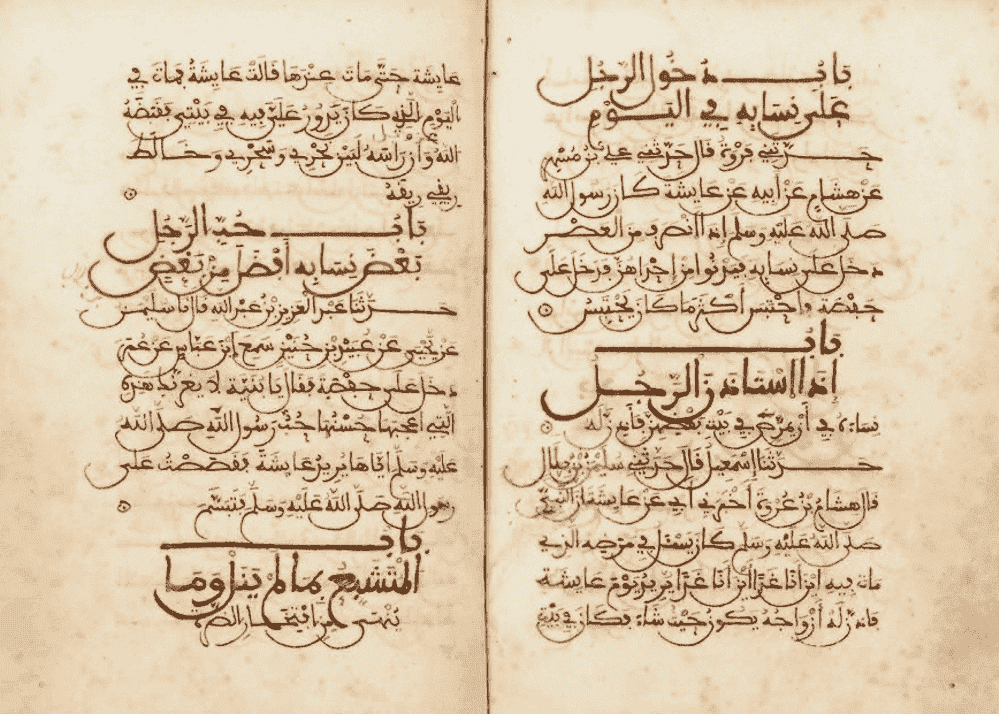 باب دخول الرجل
على نسايه في اليوم
حدثني فروة قال حدثني علي بن مسهر
عن هشام عن ابيه عن عايشة كان رسول الله
صلى الله عليه وسلم إذا انصرف من العصر
دخل على نسايه فيدنوا من إحداهن فدخل على
حفصة واحتبس أكثر ما كان يحتبس
باب
إذا استاذن الرجل
نساءه في أن يمرض في بيت بعضهن فأذن له
حدثنا إسمعيل قال حدثني سليمن بن بلال
قال هشام بن عروة أخبرني أبي عن عايشة أن النبي
صلى الله عليه وسلم كان يسئل في مرضه الذي
مات فيه اين أنا غدا أين أنا غدا يريد يوم عايشة
فاذن له أزواجه يكون حيث شاء فكان في بيت
عايشة حتى مات عندها قالت عايشة فمات في
اليوم الذي كان يدور علي فيه في بيتي فقبضه
الله وأن رأسه لبين نحري وسحري وخالط
ريقي ريقه
باب حب الرجل
بعض نسايه أفضل من بعض
حدثنا عبد العزيز بن عبد الله قال نا سليمن
عن يحيى عن عبيد بن حنين سمع ابن عباس عن عمر
دخل على حفصة فقال يا بنية لا يغرنك هذه
التي أعجبها حسنها حب رسول الله صلى الله
عليه وسلم اياها يريد عايشة فقصصت على
رسول الله صلى الله عليه وسلم فتبسم
باب
المتشبع مالم ينل وما
ينهى من